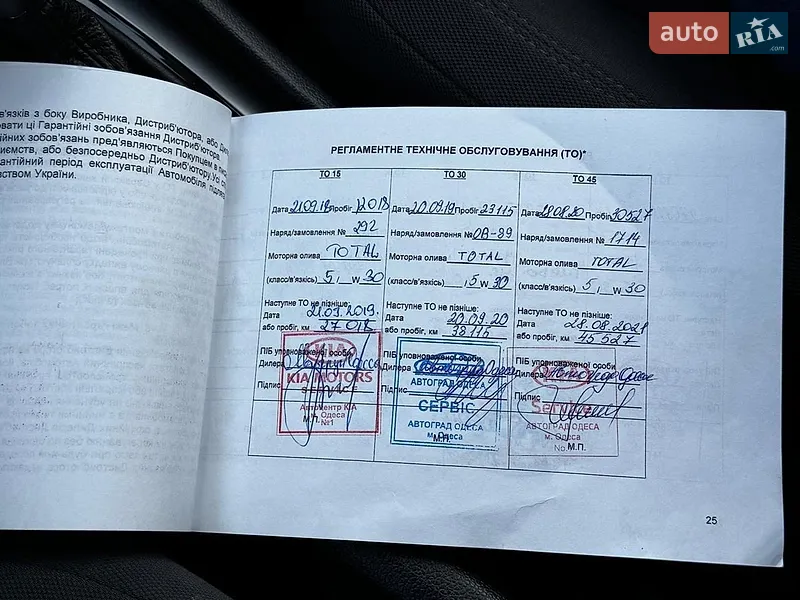 auto RIA .com
в'язків з боку Виробника, Дистриб'ютора, або
вати ці Гарантійні зобов'язання Дистриб'ютора
ійних зобов'язань пред'являються Покупцем в
риємств, або безпосередньо Дистриб'ютору. Усі
рантійний період експлуатації Автомобіля
вством України.
РЕГЛАМЕНТНЕ ТЕХНІЧНЕ ОБСЛУГОВУВАННЯ (ТО)*
ТО 15
Дата 21.09.18 Пробіг 12018
Наряд/замовлення № 292
Моторна олива TOTAL
(класс/в'язкісь) 5 W 30
Наступне ТО не пізніше:
Дата 21.09.2019.
або пробіг, км 27 018
ПІБ уповноваженої особи
Дилера
Підпис
KIA
KIA MOTORS
SERVICE
Автоцентр KIA
м. Одеса
М.П.
№1
ТО 30
Дата 20.09.19 Пробіг 23115
Наряд/замовлення № ОВ-89
Моторна олива TOTAL
(класс/в'язкісь) 5 W 30
Наступне ТО не пізніше:
Дата 20.09.20
або пробіг, км 38 115
ПІБ уповноваженої особи
Дилера
Підпис
АВТОГРАД ОДЕСА
СЕРВІС
АВТОГРАД ОДЕСА
м. Одеса
М.П.
ТО 45
Дата 28.08.20 Пробіг 30527
Наряд/замовлення № 1714
Моторна олива TOTAL
(класс/в'язкісь) 5 W 30
Наступне ТО не пізніше:
Дата 28.08.2021
або пробіг, км 45 527
ПІБ уповноваженої особи
Дилера
Підпис
Service
АВТОГРАД ОДЕСА
м. Одеса
No. М.П.
25